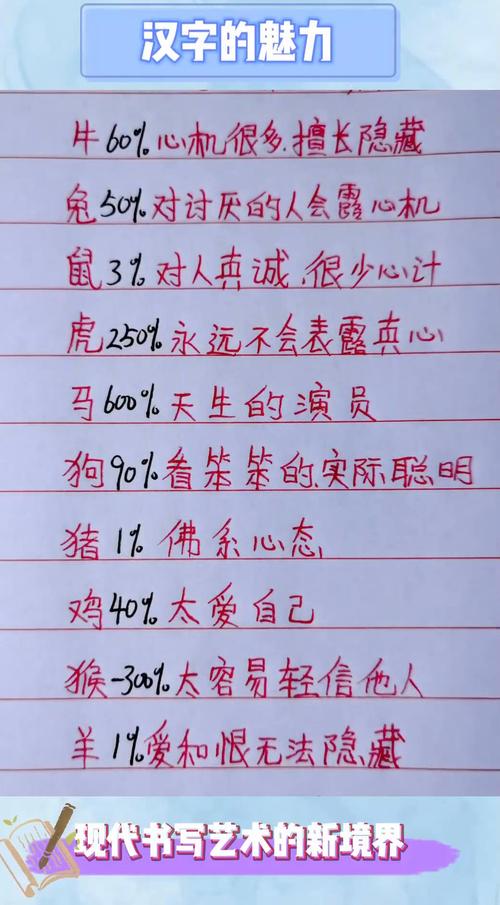 汉字的魅力
牛60%心机很多.擅长隐藏
兔50%对讨厌的人会露心机
鼠3%对人真诚.很少心计
虎250%永远不会表露真心
马600%天生的演员
狗90%看笨笨的.实际聪明
猪1%佛系心态
鸡40%太爱自己
猴-300%太容易轻信他人
羊1%爱和恨无法隐藏
现代书写艺术的新境界